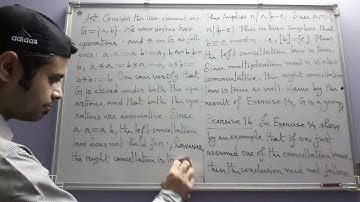 adidas
Sol: Consider the two-element set
G = {a, b}. We now define two
operations · and * on G as follo
ws: a·a = a·b = a, b·a = b·b
a*a = b*a = a, a*b =
b*b = b. One can verify that
G is closed under both the oper-
ations, and that both the oper-
ations are associative. Since
a·a = a·b, the left cancellation
law does not hold for ·, however,
the right cancellation is
This implies n | a(b-c). Since
n | (b-c). This in turn implies that
b ≡ c mod n, i.e. [b] = [c]. Thus
the left cancellation law is true.
Since multiplication mod n is also
commutative, the right cancellation
law is true as well. Hence by the
result of Exercise 14, G is a group
Exercise 16. In Exercise 14, show
by an example that if one just
assumed one of the cancellation laws
then the conclusion need not follow